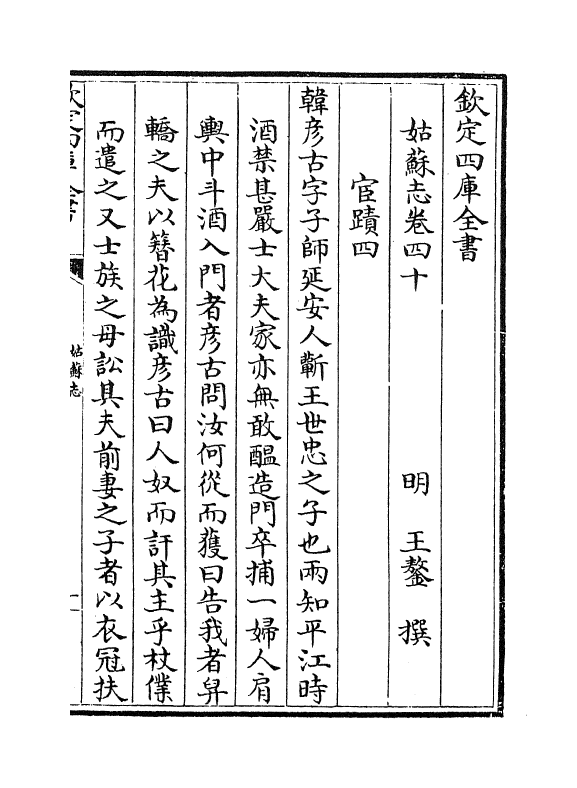 欽定四庫全書
姑蘇志卷四十
明 王鏊 撰
宦蹟四
韓彦古字子師延安人蘄王世忠之子也兩知平江時
酒禁甚嚴士大夫家亦無敢醖造門卒捕一婦人肩
輿中斗酒入門者彦古問汝何從而獲曰告我者舁
轎之夫以簪花為識彦古曰人奴而訐其主乎杖僕
而遣之又士族之母訟其夫前妻之子者以衣冠扶
欽定四庫全書
姑蘇志
一